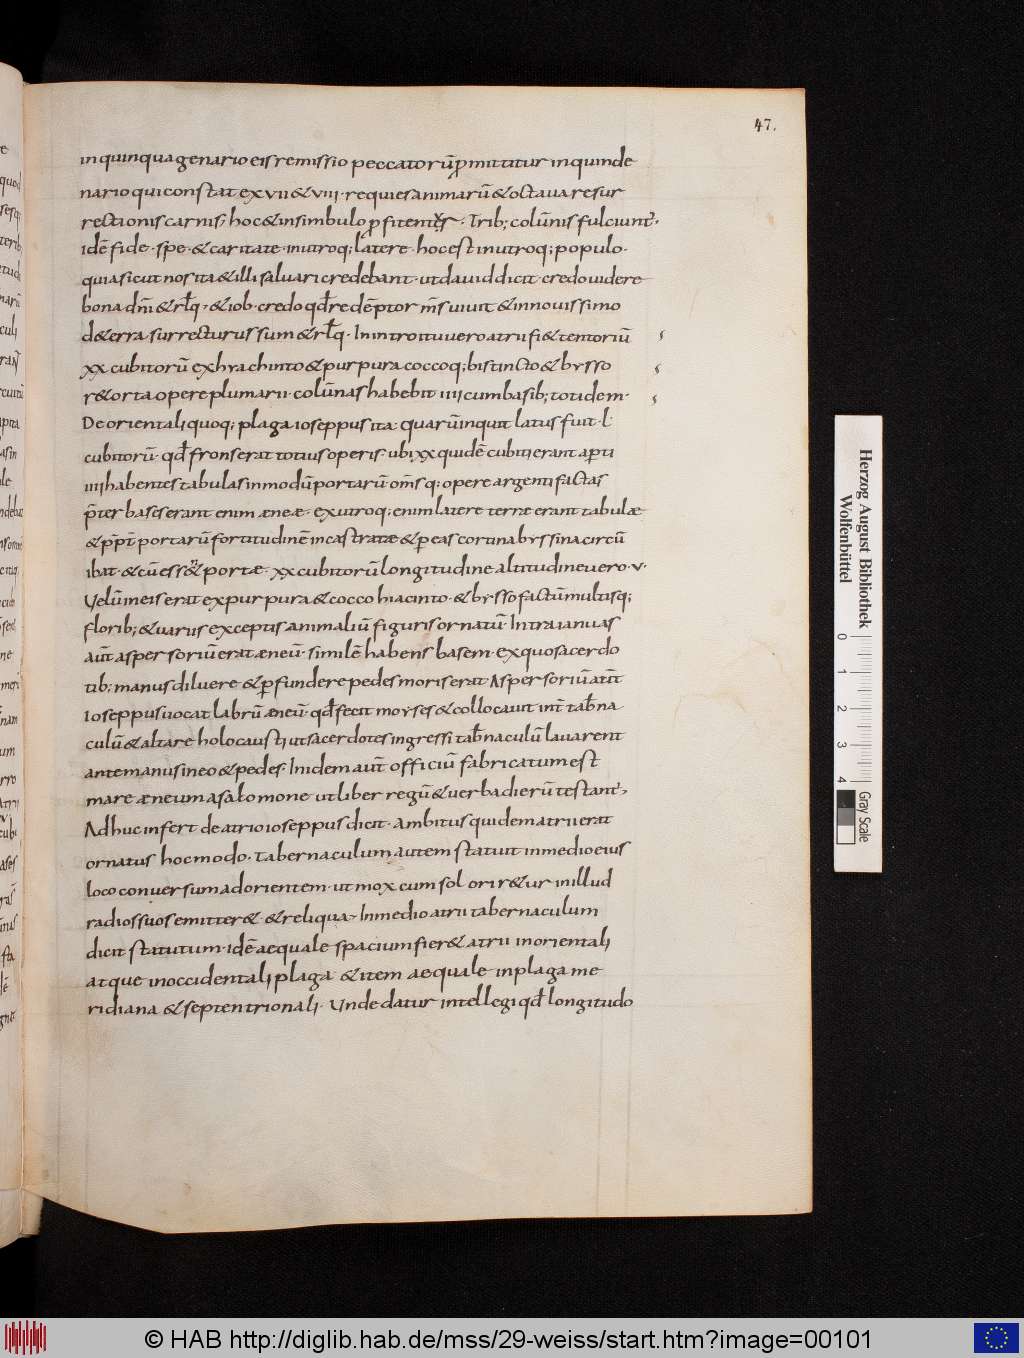 47.
inquinquagenario eis remissio peccatorū ꝑmittitur inquinde
nario qui constat ex vii & viii · requies animarū & octaua resur
rectionis carnis, hoc & in simbulo ꝓfitentes · Trib; colūnis fulciunt᷑·
idē fide · spe · & caritate · inutroq; latere · hoc est inutroq; populo ·
quia sicut nos ita & illi saluari credebant · ut dauid dicit · credo uidere
bona dn̄i & rłq, & iob · credo qđ redēptor m̄s uiuit & innouissimo
d& erra surrecturus sum & rłq · Inintroitu uero atrii fi& tentoriū
xx cubitorū ex hyachinto & purpura coccoq; bis tincto & bysso
r&orta opere plumarii · colūnas habebit iiii cum basib; totidem ·
De orientali quoq; plaga ioseppus ita · quarū inquit latus fuit · l ·
cubitorū · qđ frons erat totius operis · ubi xx quidē cubiti erant aꝑti
iiii habentes tabulas inmodū portarū om̄sq; opere argenti factas
p̄ter bases erant enim æneæ · ex utroq; enim latere ternæ erant tabulæ
& p̄pt̄ portarū fortitudinē incastratæ & ꝑ eas cortina byssina circū
ibat · & cū ess& portæ · xx cubitorū longitudine altitudine uero · v ·
Velū meis erat ex purpura & cocco hiacinto · & bysso factū multisq;
florib; & uariis exceptis animaliū figuris ornatū · Intra ianuas
aut̄ aspersoriū erat æneū · similē habens basem · ex quo sacerdo
tib; manus diluere & ꝑfundere pedes moris erat Aspersoriū aut̄
ioseppus uocat labrū æneū · qđ fecit moyses & collocauit int̄ tab̄na
culū & altare holocausti ut sacerdotes ingressi tab̄naculū lauarent
ante manus in eo & pedes · Inidem aut̄ officiū fabricatum est
mare æneum a salomone ut liber regū & uerba dierū testant᷑,
Adhuc infert de atrio ioseppus dicit · ambitus quidem atrii erat
ornatus hoc modo · tabernaculum autem statuit in medio eius
loco conuersum ad orientem · ut mox cum sol orir&ur inillud
radios suos emitter& · & reliqua, Inmedio atrii tabernaculum
dicit statutum · idē aequale spacium fier& atrii in orientali
atque inoccidentali plaga & item aequale inplaga me
ridiana & septentrionali · Vnde datur intellegi qđ longitudo
Herzog August Bibliothek
Wolfenbüttel
0 1 2 3 4
Gray Scale
© HAB http://diglib.hab.de/mss/29-weiss/start.htm?image=00101